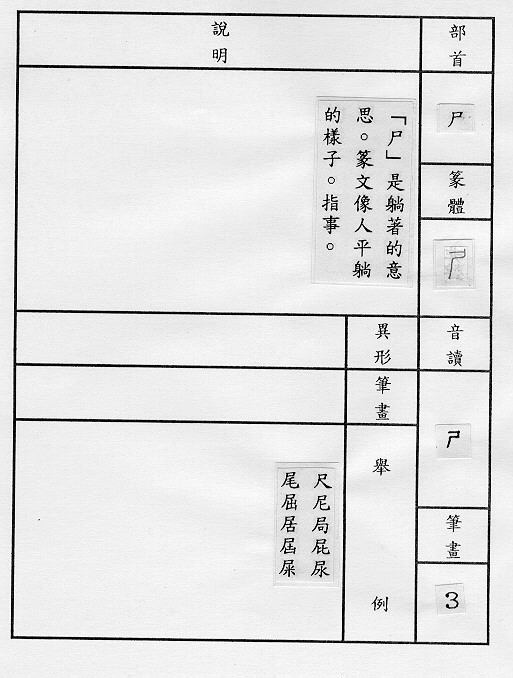 部首
尸
篆體
音讀
ㄕ
筆畫
3
說明
「尸」是躺著的意
思。篆文像人平躺
的樣子。指事。
異形
筆畫
舉例
尺尼局屁尿
尾屈居屆屎